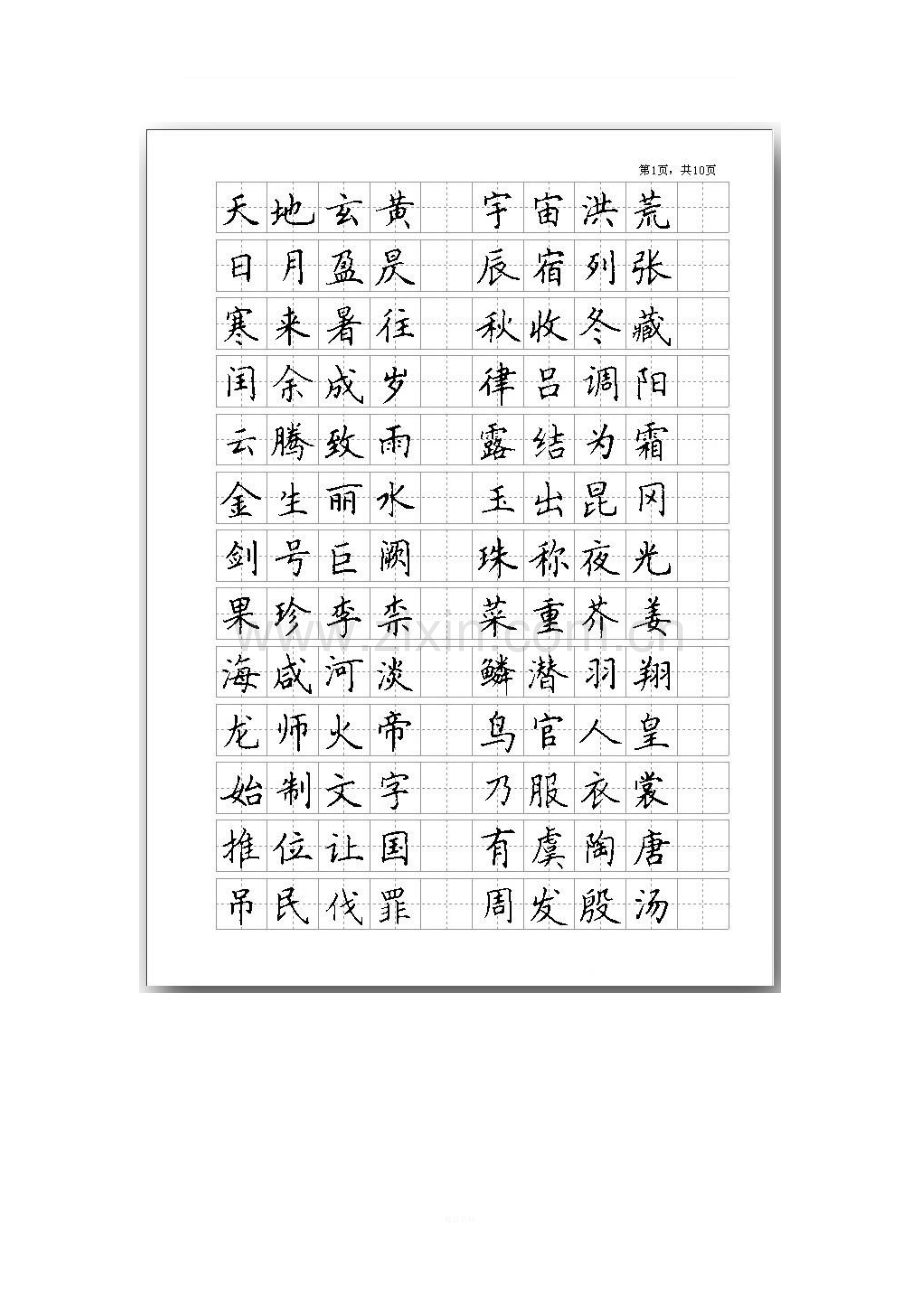 第1页，共10页
天地玄黄 宇宙洪荒
日月盈昃 辰宿列张
寒来暑往 秋收冬藏
闰余成岁 律吕调阳
云腾致雨 露结为霜
金生丽水 玉出昆冈
剑号巨阙 珠称夜光
果珍李柰 菜重芥姜
海咸河淡 鳞潜羽翔
龙师火帝 鸟官人皇
始制文字 乃服衣裳
推位让国 有虞陶唐
吊民伐罪 周发殷汤
www.zixin.com.cn